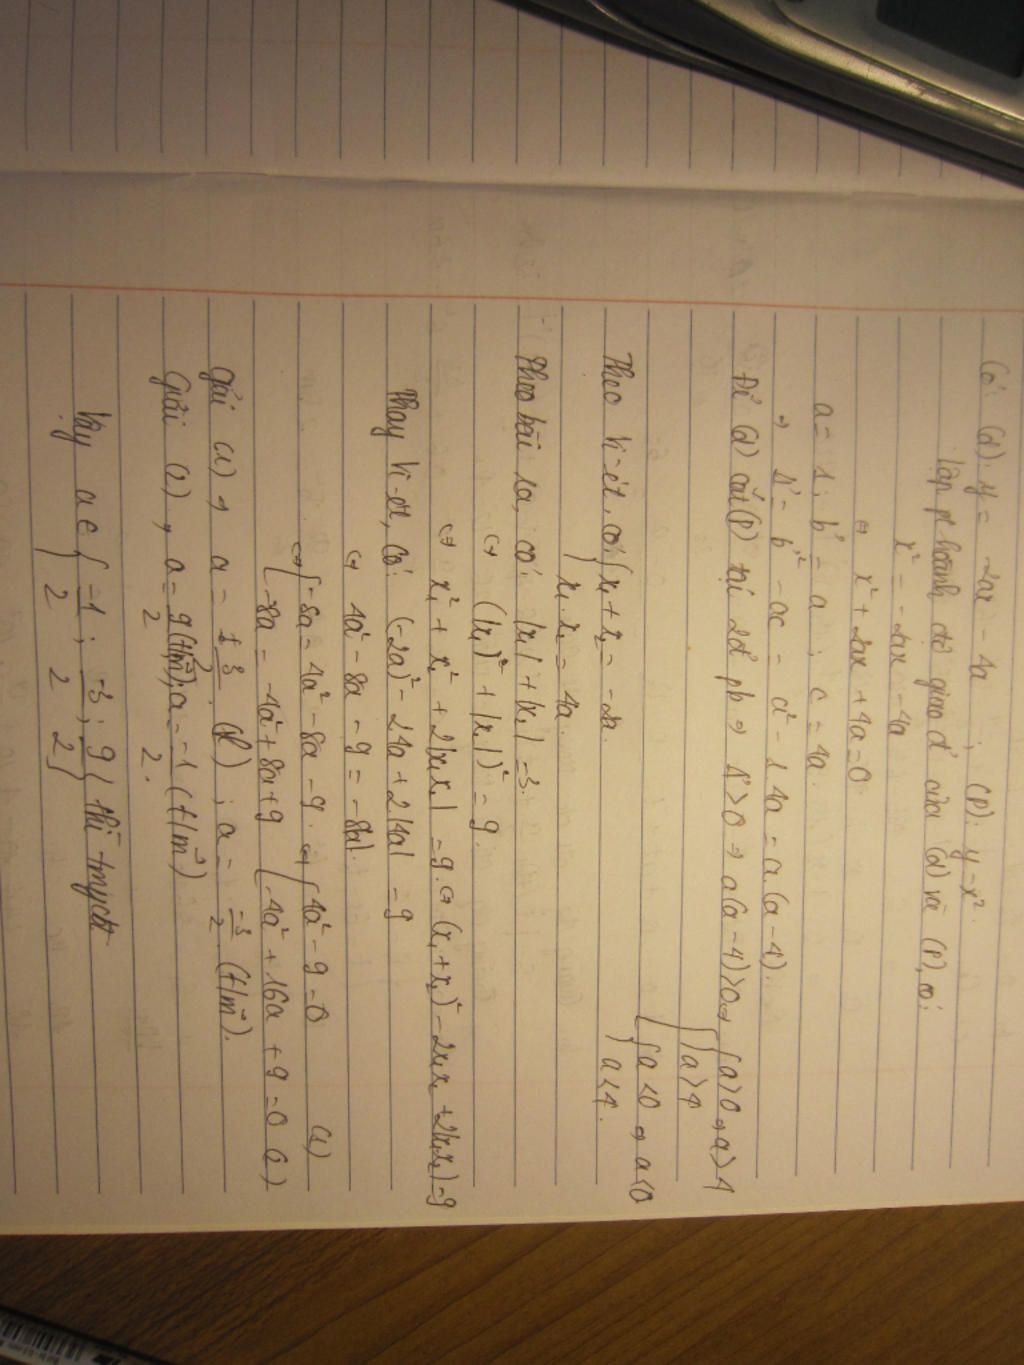 Có: (d): y = -2ax - 4a ; (P): y = x².
Lập pt hoành độ giao đ' của (d) và (P), có:
x² = -2ax - 4a
⇔ x² + 2ax + 4a = 0
a = 1 ; b' = a ; c = 4a.
⇒ Δ' = b'² - ac = a² - 1.4a = a.(a - 4).
Để (d) cắt (P) tại 2đ' pb ⇒ Δ' > 0 ⇒ a(a - 4) > 0 ⇔ [ { a > 0 ⇒ a > 4
{ a > 4
{ a < 0 ⇒ a < 0
{ a < 4.
Theo Vi-ét, có { x₁ + x₂ = -2a.
{ x₁ . x₂ = 4a.
Theo bài ra, có: |x₁| + |x₂| = 3.
⇔ (|x₁|)² + |x₂|)² = 9.
⇔ x₁² + x₂² + 2|x₁x₂| = 9. ⇔ (x₁ + x₂)² - 2x₁x₂ + 2|x₁x₂| = 9
Thay Vi-ét, có: (-2a)² - 2.4a + 2|4a| = 9
⇔ 4a² - 8a - 9 = -8|a|.
⇔ [ -8a = 4a² - 8a - 9. ⇔ [ 4a² - 9 = 0 (1)
[ -8a = -4a² + 8a + 9 [ -4a² + 16a + 9 = 0 (2)
Giải (1) ⇒ a = 3/2 ; a = -3/2 (t/m).
Giải (2), a = 9/2 (t/m); a = -1/2 (t/m)
Vậy a ∈ { -1/2 ; -3/2 ; 9/2 } thì tmycđt